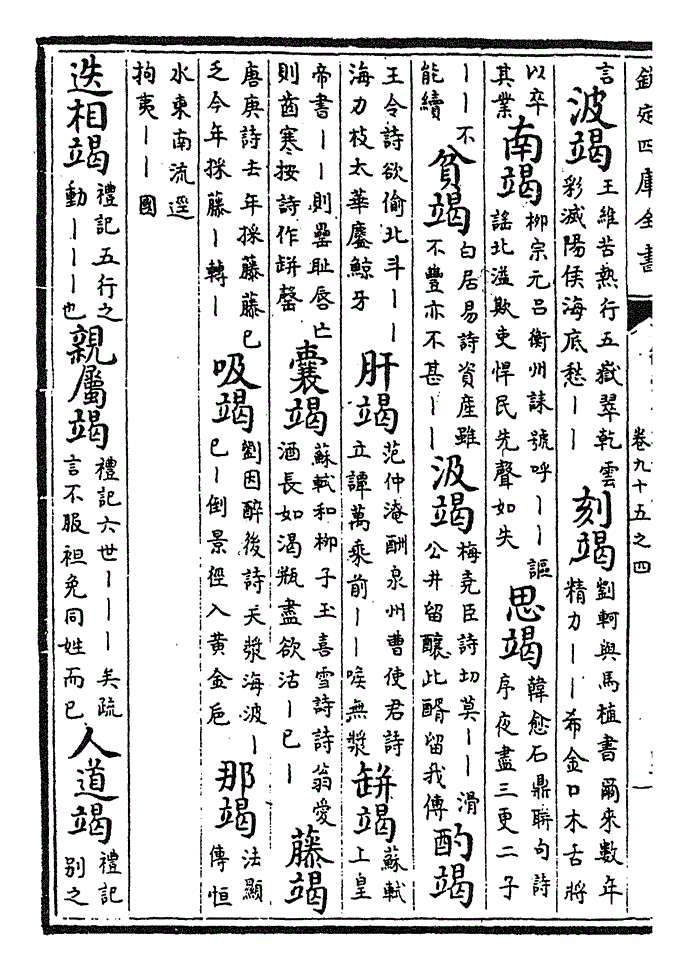 欽定四庫全書
卷九十五之四
言波竭王維苦熱行五嶽翠乾雲彩滅陽侯海底愁丨丨刻竭劉軻與馬植書爾來數年精力丨丨希金口木舌將
以卒其業南竭柳宗元呂衡州誄號呼丨丨謳謠北溢欺吏悍民先聲如失思竭韓愈石鼎聯句詩序夜盡三更二子
丨丨不能續貧竭白居易詩資產雖不豐亦不甚丨丨汲竭梅堯臣詩切莫丨丨滑公井留釀此醑留我傳酌竭
王令詩欲偷北斗丨丨海力枝太華鏖鯨牙肝竭范仲淹酬泉州曹使君詩立譚萬乘前丨丨喉無漿缾竭蘇軾上皇
帝書丨丨則罍耻唇亡則齒寒按詩作缾罄囊竭蘇軾和柳子玉喜雪詩詩翁愛酒長如渴瓶盡欲沽丨已丨藤竭
唐庚詩去年採藤藤已乏今年採藤丨轉丨吸竭劉因醉後詩天漿海波丨已丨倒景徑入黃金巵那竭法顯傳恒
水東南流逕拘夷丨丨國
迭相竭禮記五行之動丨丨丨也親屬竭禮記六世丨丨丨矣疏言不服袒免同姓而已人道竭禮記別之